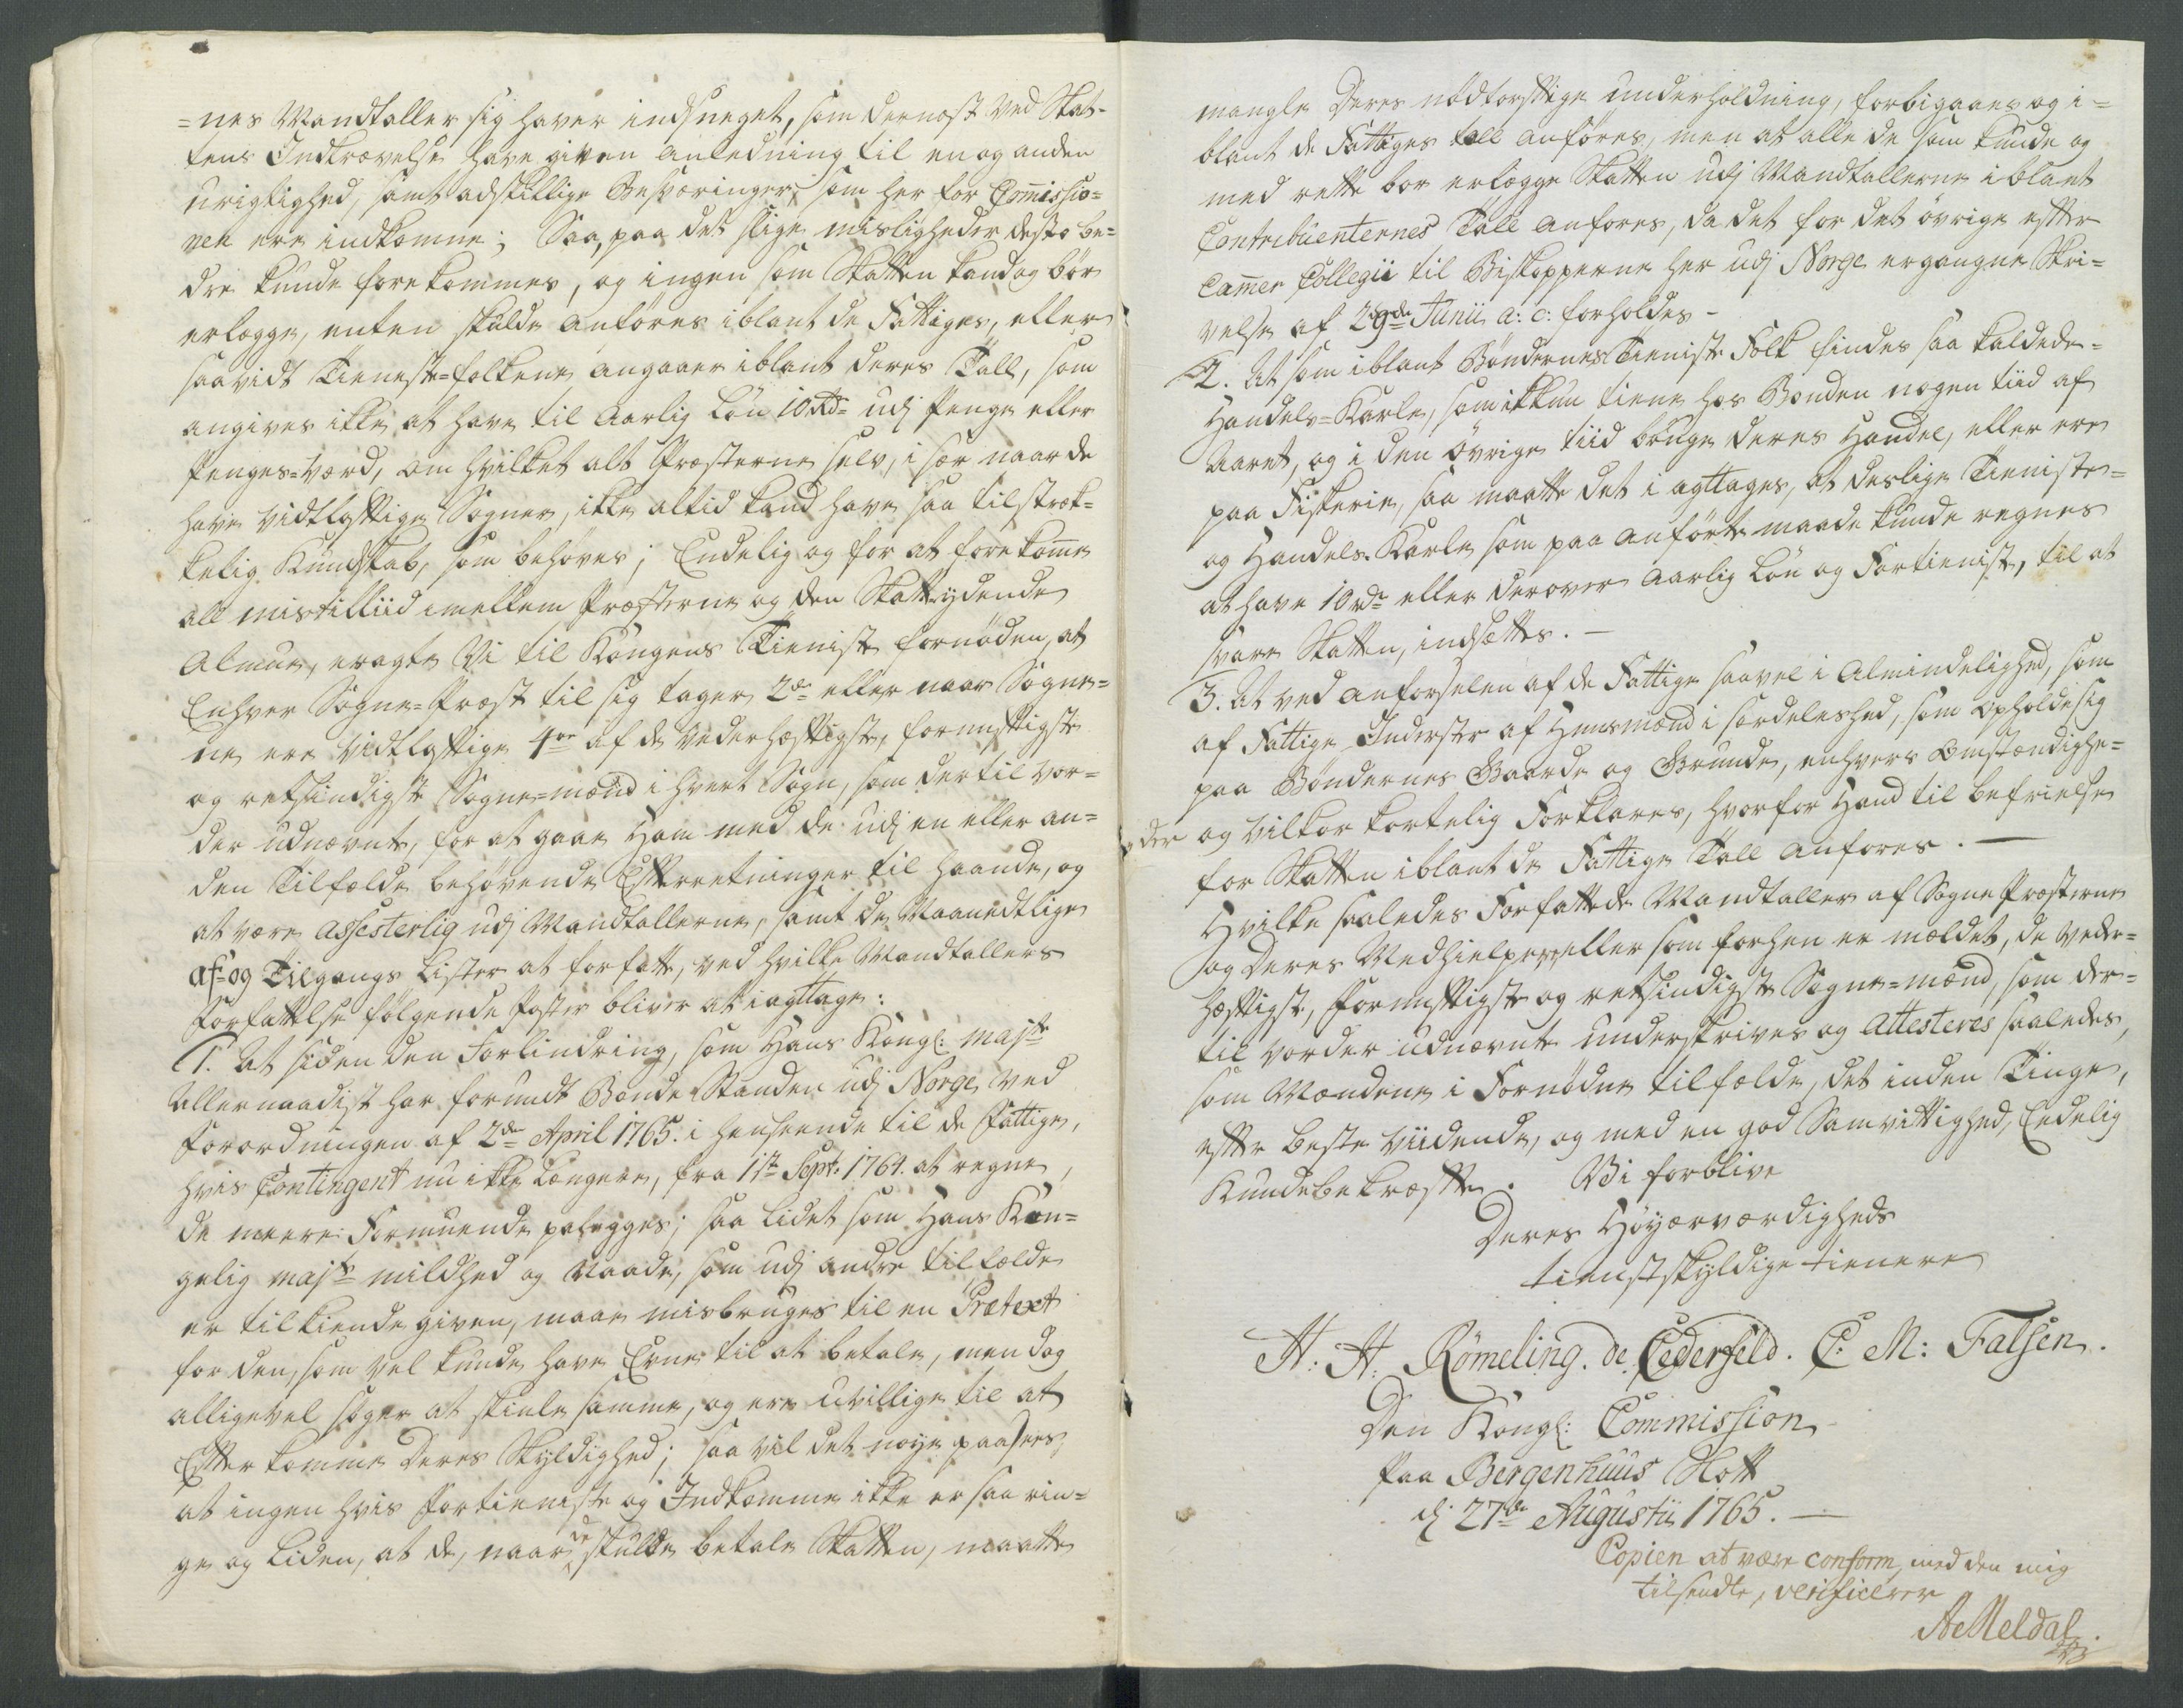 =nes Mandtaller sig haver indsneget, som dernæst ved Skat-
tens Indkrævelse have given anledning til en og anden
urigtighed, samt adskillige Besværinger, som her for Commissio=
nen ere indkomne; Saa, paa det slige misligheder desto be=
dre kunde forekommes, og ingen som Skatten kand og bör
erlægge, enten skulde anföres iblant de Fattiges, eller
saavidt Tieneste=folkene angaaer iblant deres Tall, som
angives ikke at have til aarlig Lön 10 Rd udj Penge eller
Penges=værd, om hvilket alt Præsterne selv, i sær naar de
have vidtlöftige Sogner, ikke altid kand have saa tilstræk=
kelig Kundskab, som behöves; Endelig og for at forekomme
all mistilliid imellem Præsterne og den Skattydende
Almue, eragte Vi til Kongens Tieniste fornöden, at
Enhver Sogne=Præst til sig tager 2de eller naar Sogne=
ne ere vidtlöftige 4re af de vederhæftigste, fornuftigste
og retsindigste Sogne=mænd i hvert Sogn, som dertil vor=
der udnævnte, for at gaae Ham med de udj en eller an=
den Tilfælde behövende Efterretninger til haande, og
at være assesterlig udj Mandtallerne, samt de Maanedtlige
af= og Tilgangs Lister at forfatte, ved hvilke Mandtallers
Forfattelse fölgende Poster bliver at iagttage:
1. At siden den Forlindring, som Hans Kongl: Majts
Allernaadigst har forundt Bonde Standen udj Norge ved
Forordningen af 2de April 1765. i henseende til de Fattige,
hvis Contingent nu ikke længere, fra 1ste Sept: 1764. at regne,
de meere Formuende paalegges; saa lidet som Hans Kon=
gelig Majts mildhed og Naade, som udj andre tilfælde
er tilkiende given, maae misbruges til en Prætext
for den, som vel kunde have Evne til at betale, men dog
alligevel söger at skiule samme, og ere uvillige til at
Efterkomme deres Skyldighed; saa vil det nöye paasees,
at ingen hvis Fortieniste og Indkomme ikke er saa rin=
ge og Liden, at de, naar de skulde betale Skatten, maatte
mangle Deres nödtorftige underholdning, forbigaaes og i=
blant de Fattiges tall anföres, men at alle de som kunde og
med rette bör erlægge Skatten udj Mandtallerne iblant
Contribuenternes Tall anföres, da det for det övrige efter
Cammer Collegii til Biskopperne her udj Norge ergangne Skri=
velse af 29de Junii a: c: forholdes –
2. At som iblant Böndernes Tieniste Folk findes saa kaldede=
Handels=Karle, som ikkun tiene hos Bonden nogen tiid af
Aaret, og i den övrige tiid bruge deres Handel, eller ere
paa Fiskerie, saa maatte det i agttages, at deslige Tieniste=
og Handels=Karle som paa anförte maade kunde regnes
at have 10 rd eller derover aarlig Lön og Fortienist, til at
svare Skatten, indsættes. —
3. At ved anförselen af de Fattige saavel i Almindelighed, som
af Fattige Inderster af Huusmænd i særdeleshed, som opholde sig
paa Böndernes Gaarde og Grunde, enhvers omstændighe=
der og vilkor kortelig Forklares, hvorfor Hand til befrielse
for Skatten iblant de Fattige Tall anföres. —
Hvilke saaledes Forfattede Mandtaller af Sogne Præsterne
og deres Medhielpere eller som forhen er meldet, de veder=
hæftigste, fornuftigste og retsindigste Sogne=mænd, som der=
til vorder udnævnte underskrives og Attesteres saaledes,
som Mændene i Fornödne tilfælde, det inden Tinge,
efter beste viidende, og med en god Samvittighed, Eedelig
Kunde bekræfte. Vi forblive
Deres Höyærværdigheds
tienstskyldige tienere
H: H: Römeling. de Cederfeld. C: M: Falsen.
Den Kongl: Commission
paa Bergenhuus Slott
d: 27de Augustii 1765. —
Copien at være conform, med den mig
tilsendte, verificerer
A Meldal